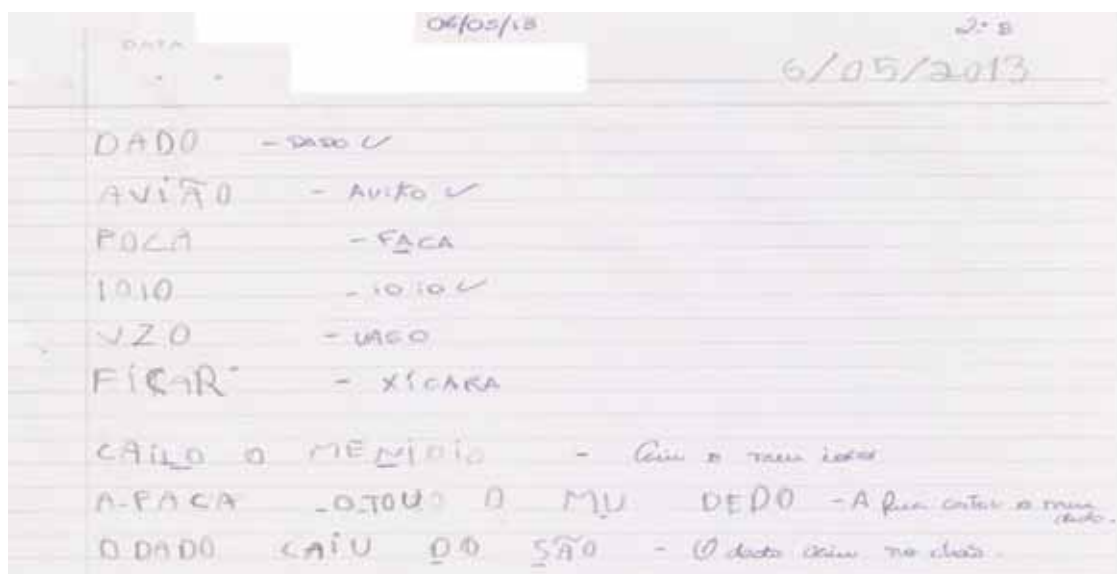 06/05/13 2º B
DATA
6/05/2013
DADO - DADO ✓
AVIÃO - AVIÃO ✓
POCA - FACA
IOIO - IOIO ✓
VZO - VASO
FICAR - XÍCARA
CAILO O MENIOIO - Caiu o meu ioiô
A-FACA OTOUO O MU DEDO - A faca cortou o meu dedo.
O DADO CAIU DO SÃO - O dado caiu no chão.